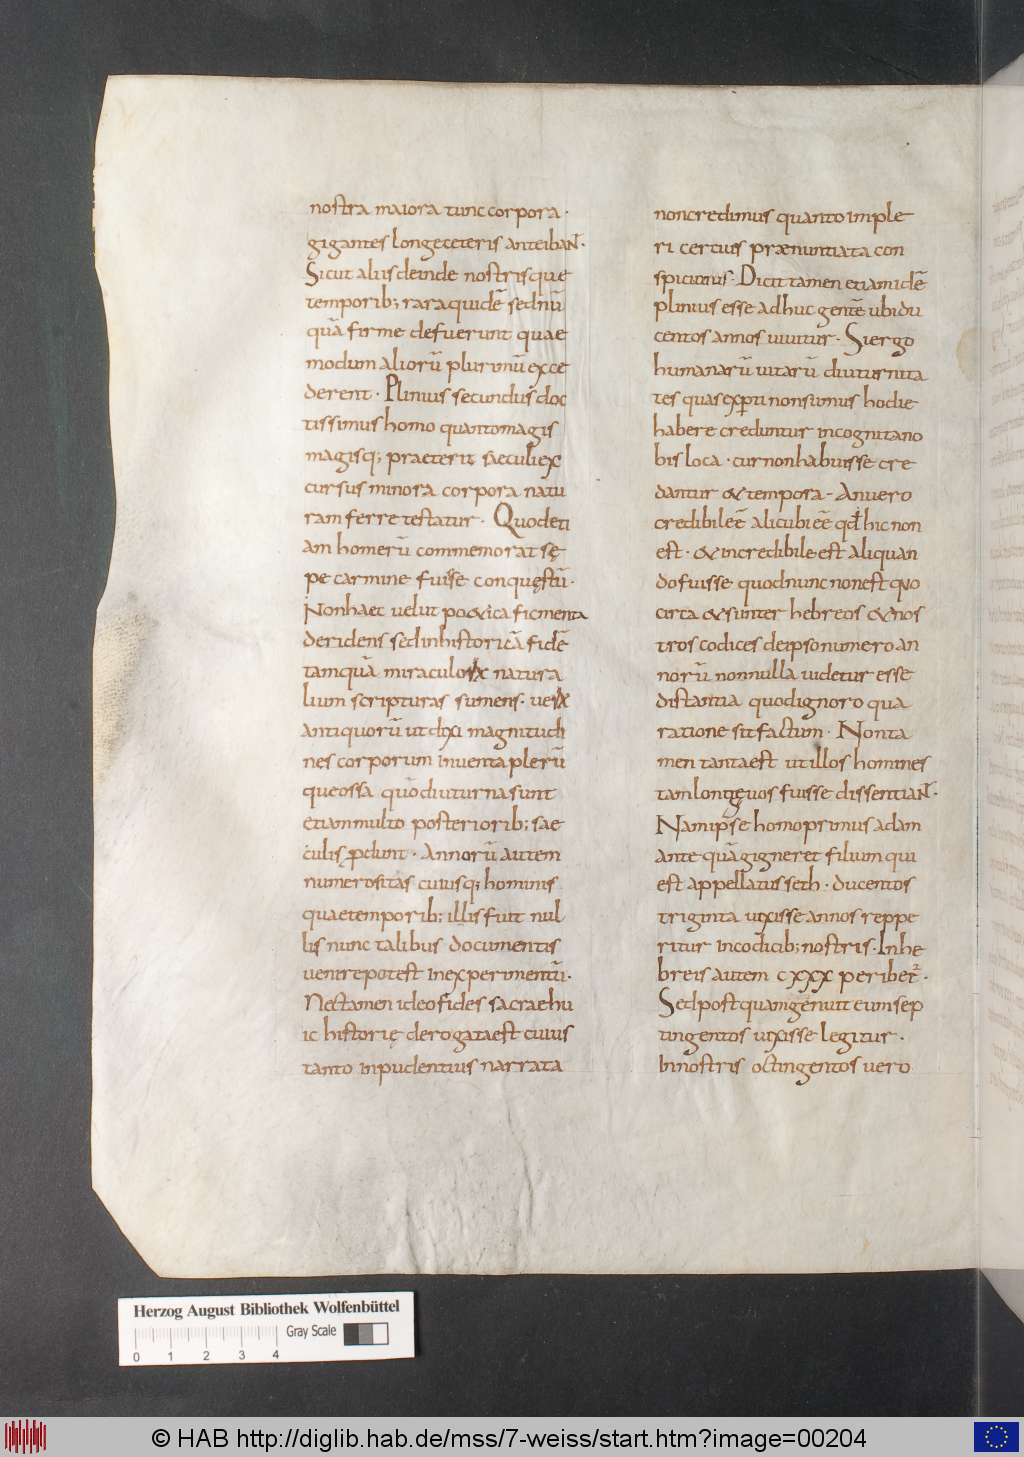 nostra maiora tunc corpora·
gigantes longe ceteris anteibaN̄·
Sicut aliis deinde nostrisque
temporib; rara quidē sed nū
quā firme defuerunt quae
modum aliorū plurimū exce
derent· Plinius secundus doc
tissimus homo quanto magis
magisq; praeterit saeculi ex
cursus minora corpora natu
ram ferre testatur· Quod eti
am homerū commemorat sę
pe carmine fuisse conquęstū·
Non haec velut po&ica ficmenta
deridens sed in historicā fidē
tamquā miraculorum natura
lium scripturas sumens· verum
antiquorū ut dixi magnitudi
nes corporum inventa plerū
que ossa quō diuturna sunt
etiam multo posteriorib; sae
culis ꝓdunt· Annorū autem
numerositas cuiusq; hominis
quae temporib; illis fuit nul
lis nunc talibus documentis
venire potest in experimentū·
Nec tamen ideo fides sacrae hu
ic historię derogata est cuius
tanto inpudentius narrata
non credimus quanto imple
ri certius prænuntiata con
spicimus· Dicit tamen etiam idē
plinius esse adhuc gentē ubi du
centos annos vivitur· Si ergo
humanarū vitarū diuturnita
tes quas exꝑti non sumus hodie
habere creduntur incognita no
bis loca· cur non habuisse cre
dantur & tempora- An vero
credibile ē alicubi eē qđ hic non
est· & incredibile est aliquan
do fuisse quod nunc non est quo
circa &si inter hebreos & nos
tros codices de ipso numero an
norū nonnulla videtur esse
distantia quod ignoro qua
ratione sit factum· Non ta
men tanta est ut illos homines
tam longęvos fuisse dissentiaN̄·
Nam ipse homo primus adam
ante quā gigneret filium qui
est appellatus seth· ducentos
triginta vixisse annos reppe
ritur in codicib; nostris· In he
breis autem cxxx peribet᷑·
Sed postquam genuit eum sep
tingentos vixisse legitur·
In nostris octingentos vero
Herzog August Bibliothek Wolfenbüttel
Gray Scale
0 1 2 3 4
© HAB http://diglib.hab.de/mss/7-weiss/start.htm?image=00204